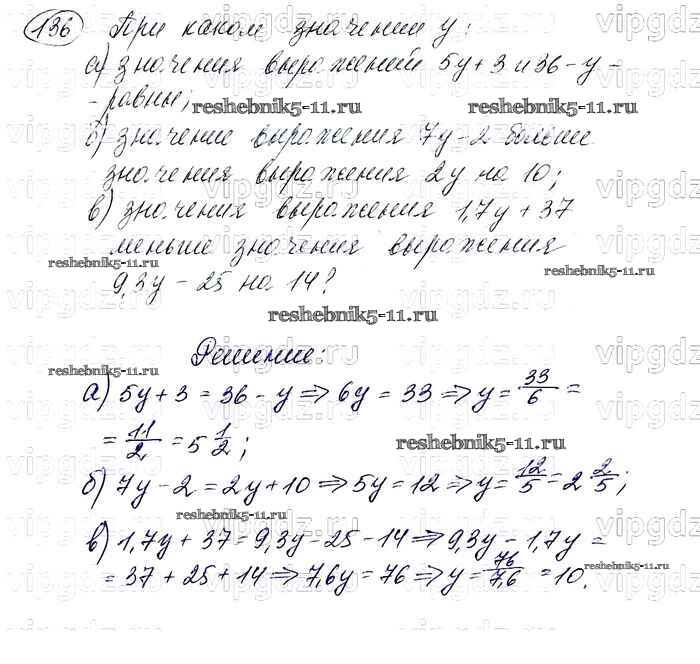 136 При каком значении y:
а) значения выражений 5y + 3 и 36 - y -
- равны;
б) значение выражения 7y - 2 больше
значения выражения 2y на 10;
в) значения выражения 1,7y + 37
меньше значения выражения
9,3y - 25 на 14?
Решение:
а) 5y + 3 = 36 - y ⇒ 6y = 33 ⇒ y = 33/6 =
= 11/2 = 5 1/2;
б) 7y - 2 = 2y + 10 ⇒ 5y = 12 ⇒ y = 12/5 = 2 2/5;
в) 1,7y + 37 = 9,3y - 25 - 14 ⇒ 9,3y - 1,7y =
= 37 + 25 + 14 ⇒ 7,6y = 76 ⇒ y = 76/7,6 = 10.
vipgdz.ru
reshebnik5-11.ru